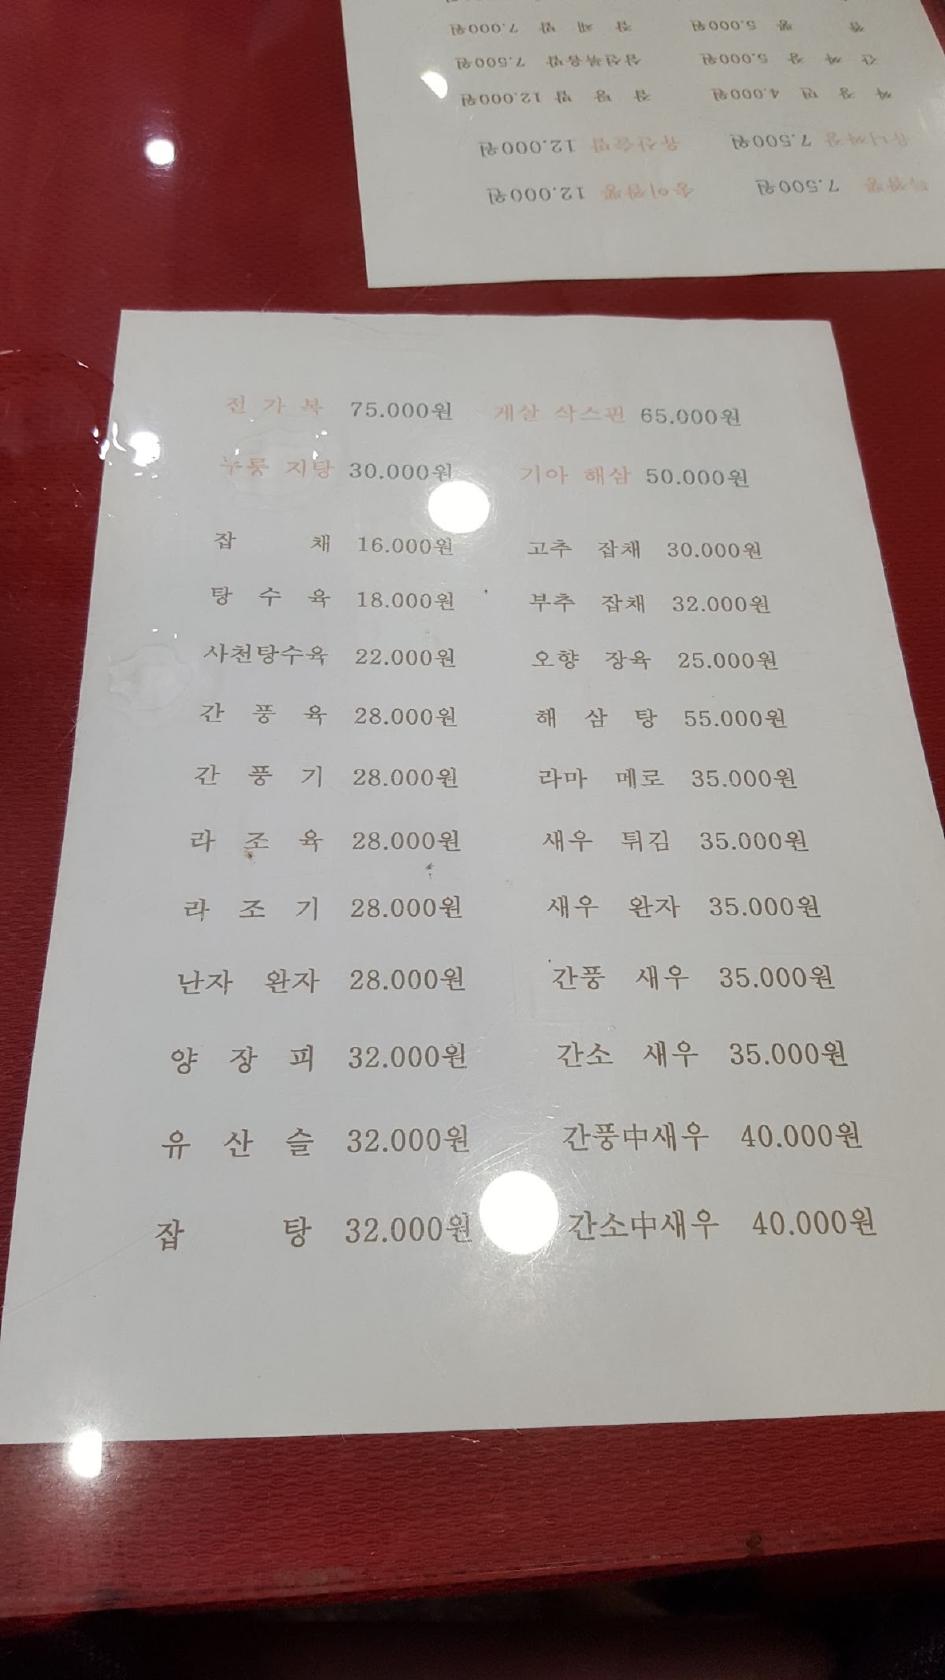 짬 뽕 5.000원 잡 채 밥 7.000원
간 짜 장 5.000원 삼선볶음밥 7.500원
짜 장 면 4.000원 잡 탕 밥 12.000원
유니짜장 7.500원 유산슬밥 12.000원
7.500원 송이짬뽕 12.000원
전 가 복 75.000원 게살 삭스핀 65.000원
누룽 지탕 30.000원 기아 해삼 50.000원
잡 채 16.000원 고추 잡채 30.000원
탕 수 육 18.000원 부추 잡채 32.000원
사천탕수육 22.000원 오향 장육 25.000원
간 풍 육 28.000원 해 삼 탕 55.000원
간 풍 기 28.000원 라마 메로 35.000원
라 조 육 28.000원 새우 튀김 35.000원
라 조 기 28.000원 새우 완자 35.000원
난자 완자 28.000원 간풍 새우 35.000원
양 장 피 32.000원 간소 새우 35.000원
유 산 슬 32.000원 간풍中새우 40.000원
잡 탕 32.000원 간소中새우 40.000원